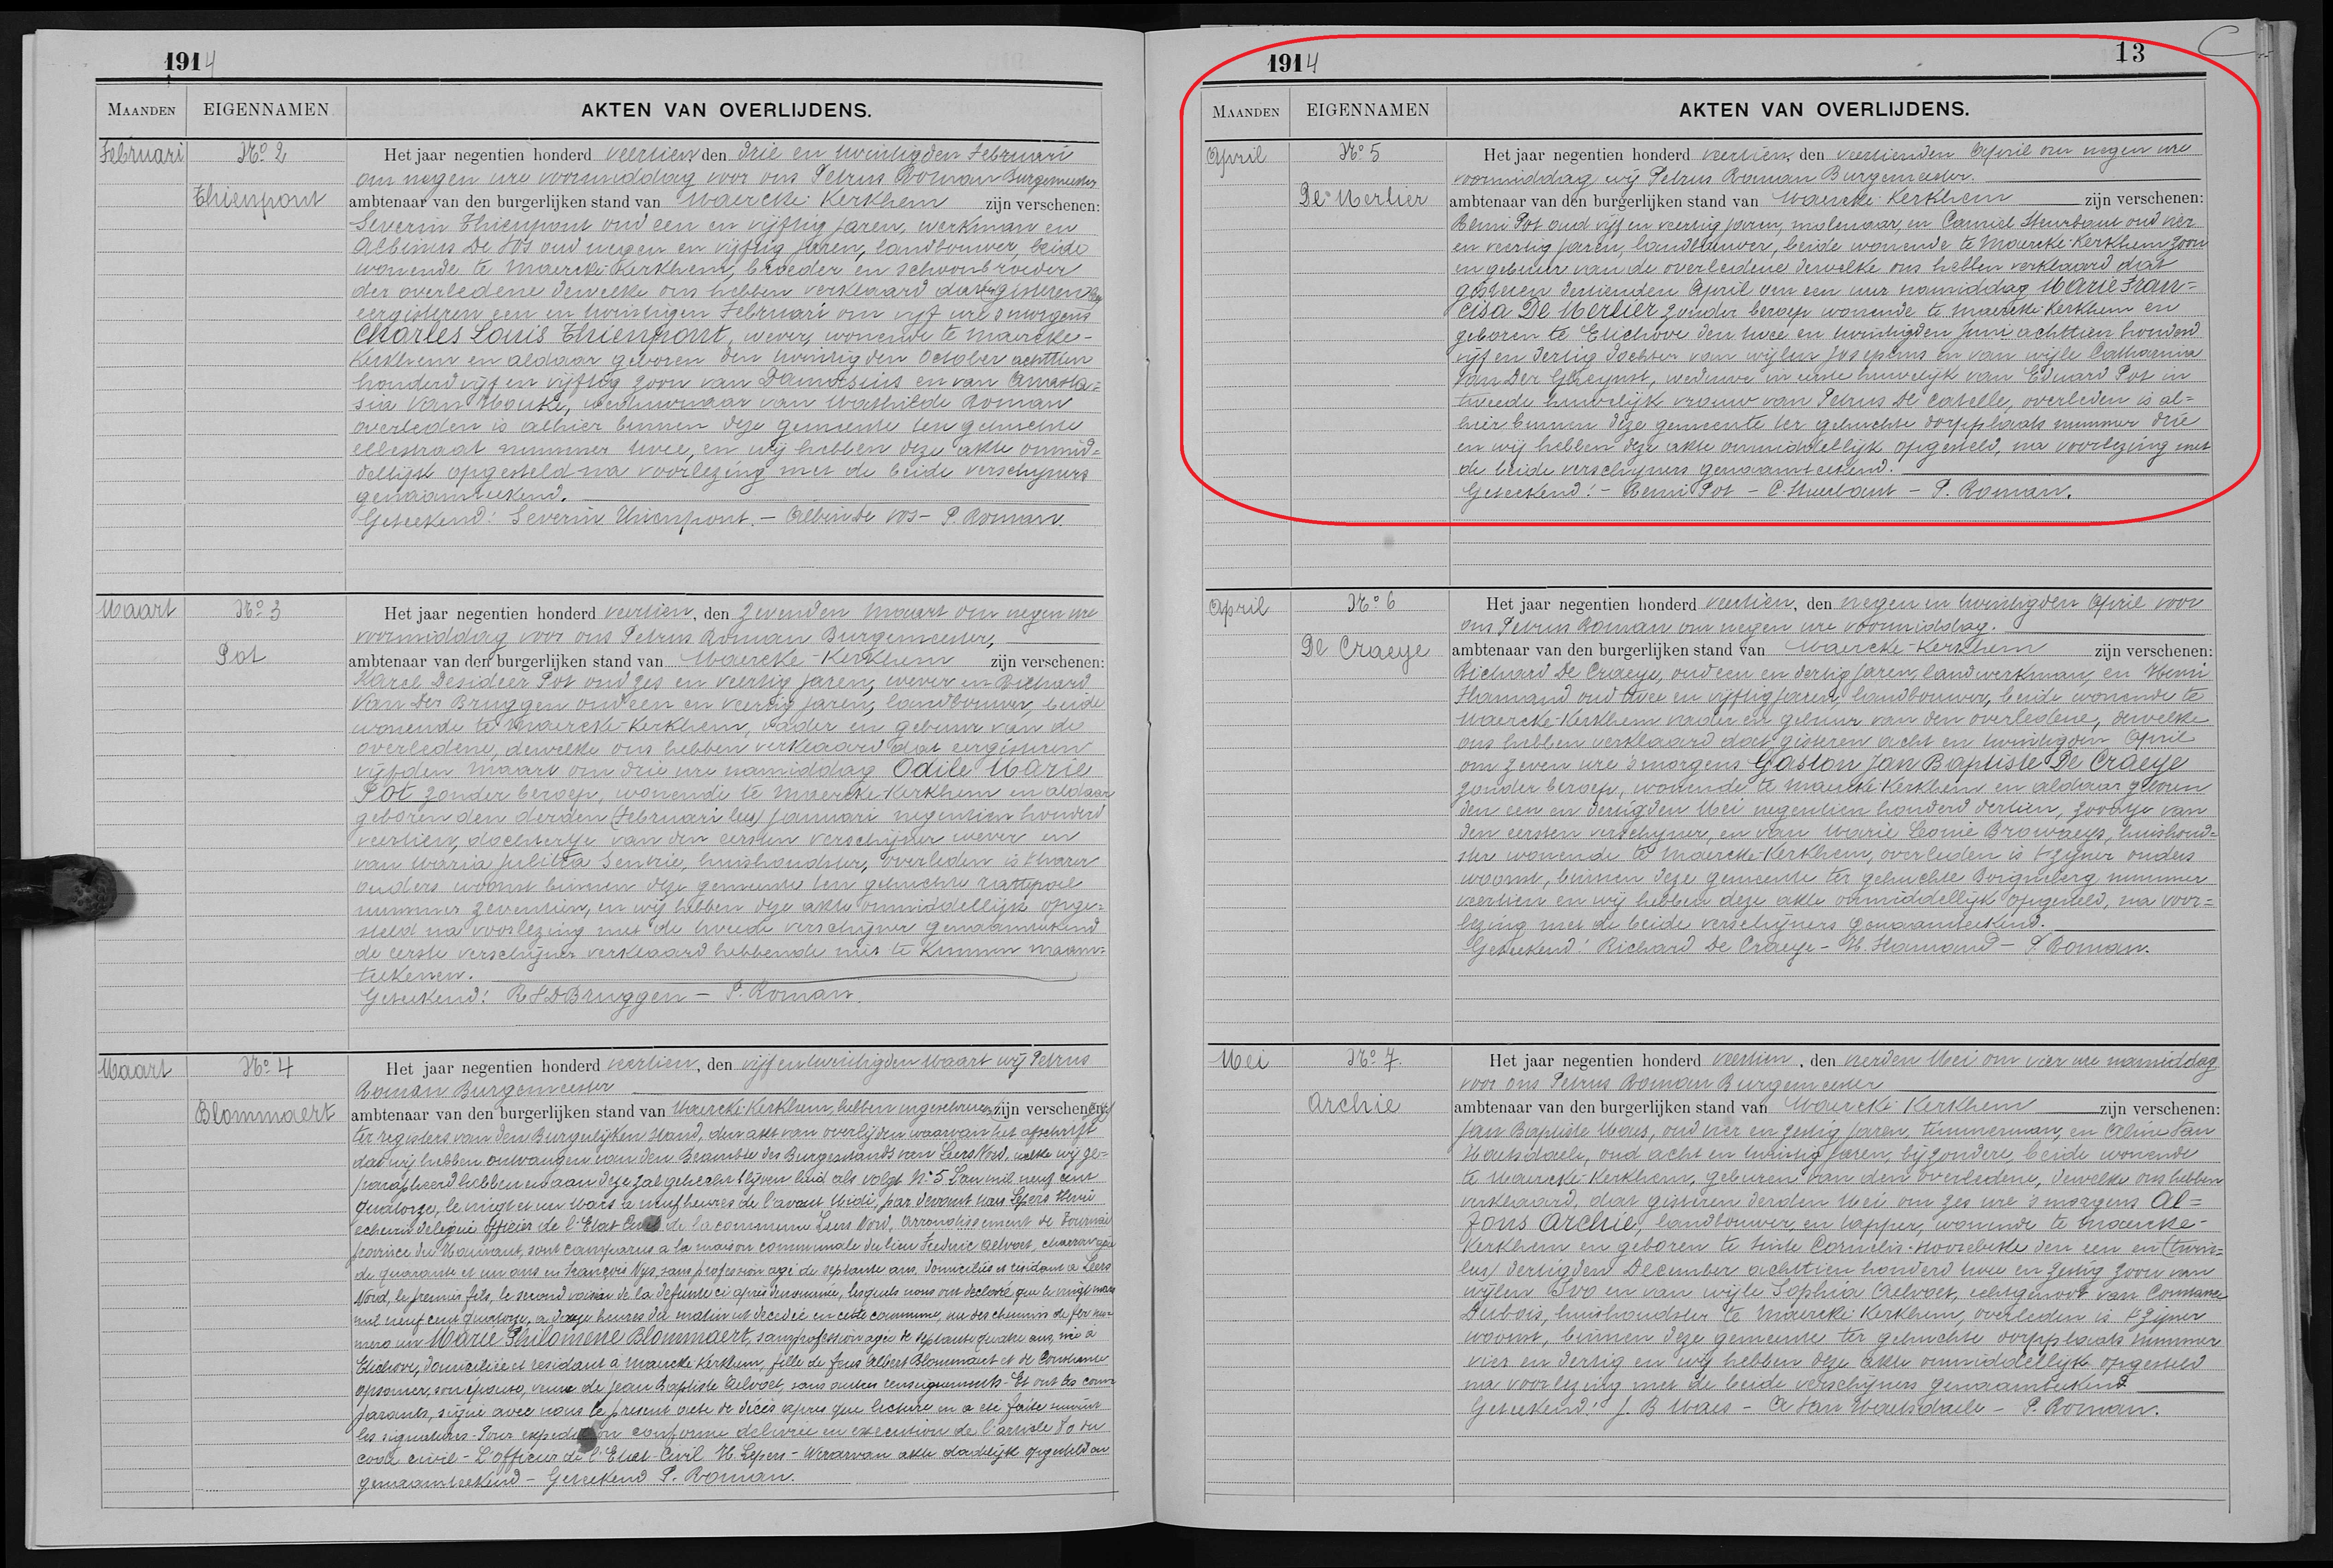 1914
MAANDEN EIGENNAMEN AKTEN VAN OVERLIJDENS.
Februari No 2 Het jaar negentien honderd veertien den drie en twintigden Februari
om negen ure voormiddag voor ons Petrus Roman Burgemeester
Thienpont ambtenaar van den burgerlijken stand van Maercke-Kerkhem zijn verschenen:
Severin Thienpont oud een en vijftig jaren, werkman en
Albinus De Vos oud negen en vijftig jaren, landbouwer, beide
wonende te Maercke-Kerkhem, broeder en schoonbroeder
der overledene dewelke ons hebben verklaard dat gisteren
eergisteren een en twintigen Februari om vijf ure 's morgens
Charles Louis Thienpont, wever, wonende te Maercke-
Kerkhem en aldaar geboren den twintigden October achttien
honderd vijf en vijftig zoon van Damasius en van Anasta=
sia Van Mouke, weduwnaar van Mathilde Roman
overleden is alhier binnen deze gemeente ten gehuchte
ellestraat nummer twee, en wij hebben deze akte onmid=
dellijk opgesteld na voorlezing met de beide verschijners
genaamteekend.
Geteekend: Severin Thienpont. - Albin De Vos - P. Roman
Maart No 3 Het jaar negentien honderd veertien, den zevenden Maart om negen ure
voormiddag voor ons Petrus Roman Burgemeester,
Pot ambtenaar van den burgerlijken stand van Maercke-Kerkhem zijn verschenen:
Karel Desideer Pot oud zes en veertig jaren, wever en Richard
Van Der Bruggen oud een en veertig jaren, landbouwer, beide
wonende te Maercke-Kerkhem, vader en gebuur van de
overledene, dewelke ons hebben verklaard dat eergisteren
vijfden Maart om drie ure namiddag Odile Marie
Pot zonder beroep, wonende te Maercke-Kerkhem en aldaar
geboren den derden (Februari lees) Januari negentien honderd
veertien, dochtertje van den eersten verschijner wever en
van Maria Julitta Gentrie, huishoudster, overleden is t'harer
ouders woonst binnen deze gemeente ten gehuchte rattepoel
nummer zeventien, en wij hebben deze akte onmiddellijk opge=
steld na voorlezing met de tweede verschijner genaamteekend
de eerste verschijner verklaard hebbende niet te kunnen naam=
teekenen.
Geteekend: R VDBruggen - P. Roman.
Maart No 4 Het jaar negentien honderd veertien, den vijf en twintigden Maart wij Petrus
Roman Burgemeester
Blommaert ambtenaar van den burgerlijken stand van Maercke-Kerkhem, hebben ingeschreven zijn verschenen:
ter registers van den Burgerlijken Stand, den akt van overlijden waarvan het afschrift
dat wij hebben ontvangen van den Beambte des Burgerstands van Leers Nord, welke wij ge=
parapheerd hebben en aan deze zal gehecht blijven luid als volgt No 5 L'an mil neuf cent
quatorze, le vingt et un Mars à neuf heures de l'avant Midi, par devant nous Lepers Henri
echevin délegué officier de l'Etat Civil de la commune Leers Nord, arrondissement de Tournai
province du Hainaut, sont comparus à la maison communale du lieu Frederic Aelvoet,
de quarante et un ans en François Nys, sans profession age de septante ans, domiciliés et résidant à Leers
Nord, le premier fils, le second voisin de la defunte ci après denommée, lesquels nous ont declaré que le vingt mars
mil neuf cent quatorze, à douze heures du matin est decedée en cette commune, rue des chemins de fer nu=
mero un Marie Philomene Blommaert, sans profession agée de septante quatre ans, née à
Etichove, domiciliée et residant à Maercke Kerkhem, fille de feus Albert Blommaert et de Constance
Opsomer, son épouse, veuve de Jean Baptiste Aelvoet, sans autres renseignements - Et ont les com=
parants, signé avec nous le present acte de décès après que lecture en a été faite suivent
les signatures - Pour expedition conforme delivrée en execution de l'article 80 du
code civil - L'officier de l'Etat-Civil H. Lepers - Waarvan akte dadelijk opgesteld en
genaamteekend - Geteekend P. Roman.
1914 13
MAANDEN EIGENNAMEN AKTEN VAN OVERLIJDENS.
April No 5 Het jaar negentien honderd veertien, den veertienden April om negen ure
voormiddag wij Petrus Roman Burgemeester.
De Merlier ambtenaar van den burgerlijken stand van Maercke-Kerkhem zijn verschenen:
Remi Pot oud vijf en veertig jaren, molenaar, en Camiel Steurbaut oud vier
en veertig jaren, landbouwer, beide wonende te Maercke-Kerkhem zoon
en gebuur van de overledene dewelke ons hebben verklaard dat
gisteren dertienden April om een uur namiddag Marie Fran=
cisa De Merlier zonder beroep wonende te Maercke-Kerkhem en
geboren te Etichove den twee en twintigden Juni achttien honderd
vijf en dertig dochter van wijlen Josephus en van wijle Catharina
Van Der Gheynst, weduwe in eerste huwelijk van Eduard Pot in
tweede huwelijk vrouw van Petrus De Catelle, overleden is al=
hier binnen deze gemeente ter gehuchte dorpplaats nummer drie
en wij hebben deze akte onmiddellijk opgesteld, na voorlezing met
de beide verschijners genaamteekend.
Geteekend: - Remi Pot - C. Steurbaut - P. Roman.
April No 6 Het jaar negentien honderd veertien, den negen en twintigden April voor
ons Petrus Roman om negen ure voormiddag.
De Craeye ambtenaar van den burgerlijken stand van Maercke-Kerkhem zijn verschenen:
Richard De Craeye, oud een en dertig jaren, landwerkman, en Henri
Hamand oud twee en vijftig jaren, landbouwer, beide wonende te
Maercke-Kerkhem vader en gebuur van den overledene, dewelke
ons hebben verklaard dat gisteren acht en twintigden April
om zeven ure 's morgens Gaston Jan Baptiste De Craeye
zonder beroep, wonende te Maercke-Kerkhem en aldaar geboren
den een en dertigden Mei negentien honderd dertien, zoontje van
den eersten verschijner, en van Marie Leonie Browaeys, huishoud=
ster wonende te Maercke-Kerkhem, overleden is t'zijner ouders
woonst, binnen deze gemeente ter gehuchte Boigneberg nummer
veertien en wij hebben deze akte onmiddellijk opgesteld, na voor=
lezing met de beide verschijners genaamteekend.
Geteekend: Richard De Craeye - H. Hamand - P. Roman.
Mei No 7. Het jaar negentien honderd veertien, den vierden Mei om vier ure namiddag
voor ons Petrus Roman Burgemeester
Archie ambtenaar van den burgerlijken stand van Maercke-Kerkhem zijn verschenen:
Jan Baptiste Maes, oud vier en zestig jaren, timmerman, en Aline Van
Maelsdaele, oud acht en twintig jaren, bijzondere, beide wonende
te Maercke-Kerkhem, geburen van den overledene, dewelke ons hebben
verklaard, dat gisteren derden Mei om zes ure 's morgens Al=
fons Archie, landbouwer, en tapper, wonende te Maercke-
Kerkhem en geboren te Sinte Cornelis-Hoorebeke den een en (twin=
lees) dertigden December achttien honderd twee en zestig zoon van
wijlen Ivo en van wijle Sophia Aelvoet, echtgenoot van Constance
Dubois, huishoudster te Maercke-Kerkhem, overleden is t'zijner
woonst, binnen deze gemeente ter gehuchte dorpplaats nummer
vier en dertig en wij hebben deze akte onmiddellijk opgesteld
na voorlezing met de beide verschijners genaamteekend
Geteekend: J. B Maes - A Van Maelsdaele - P. Roman.